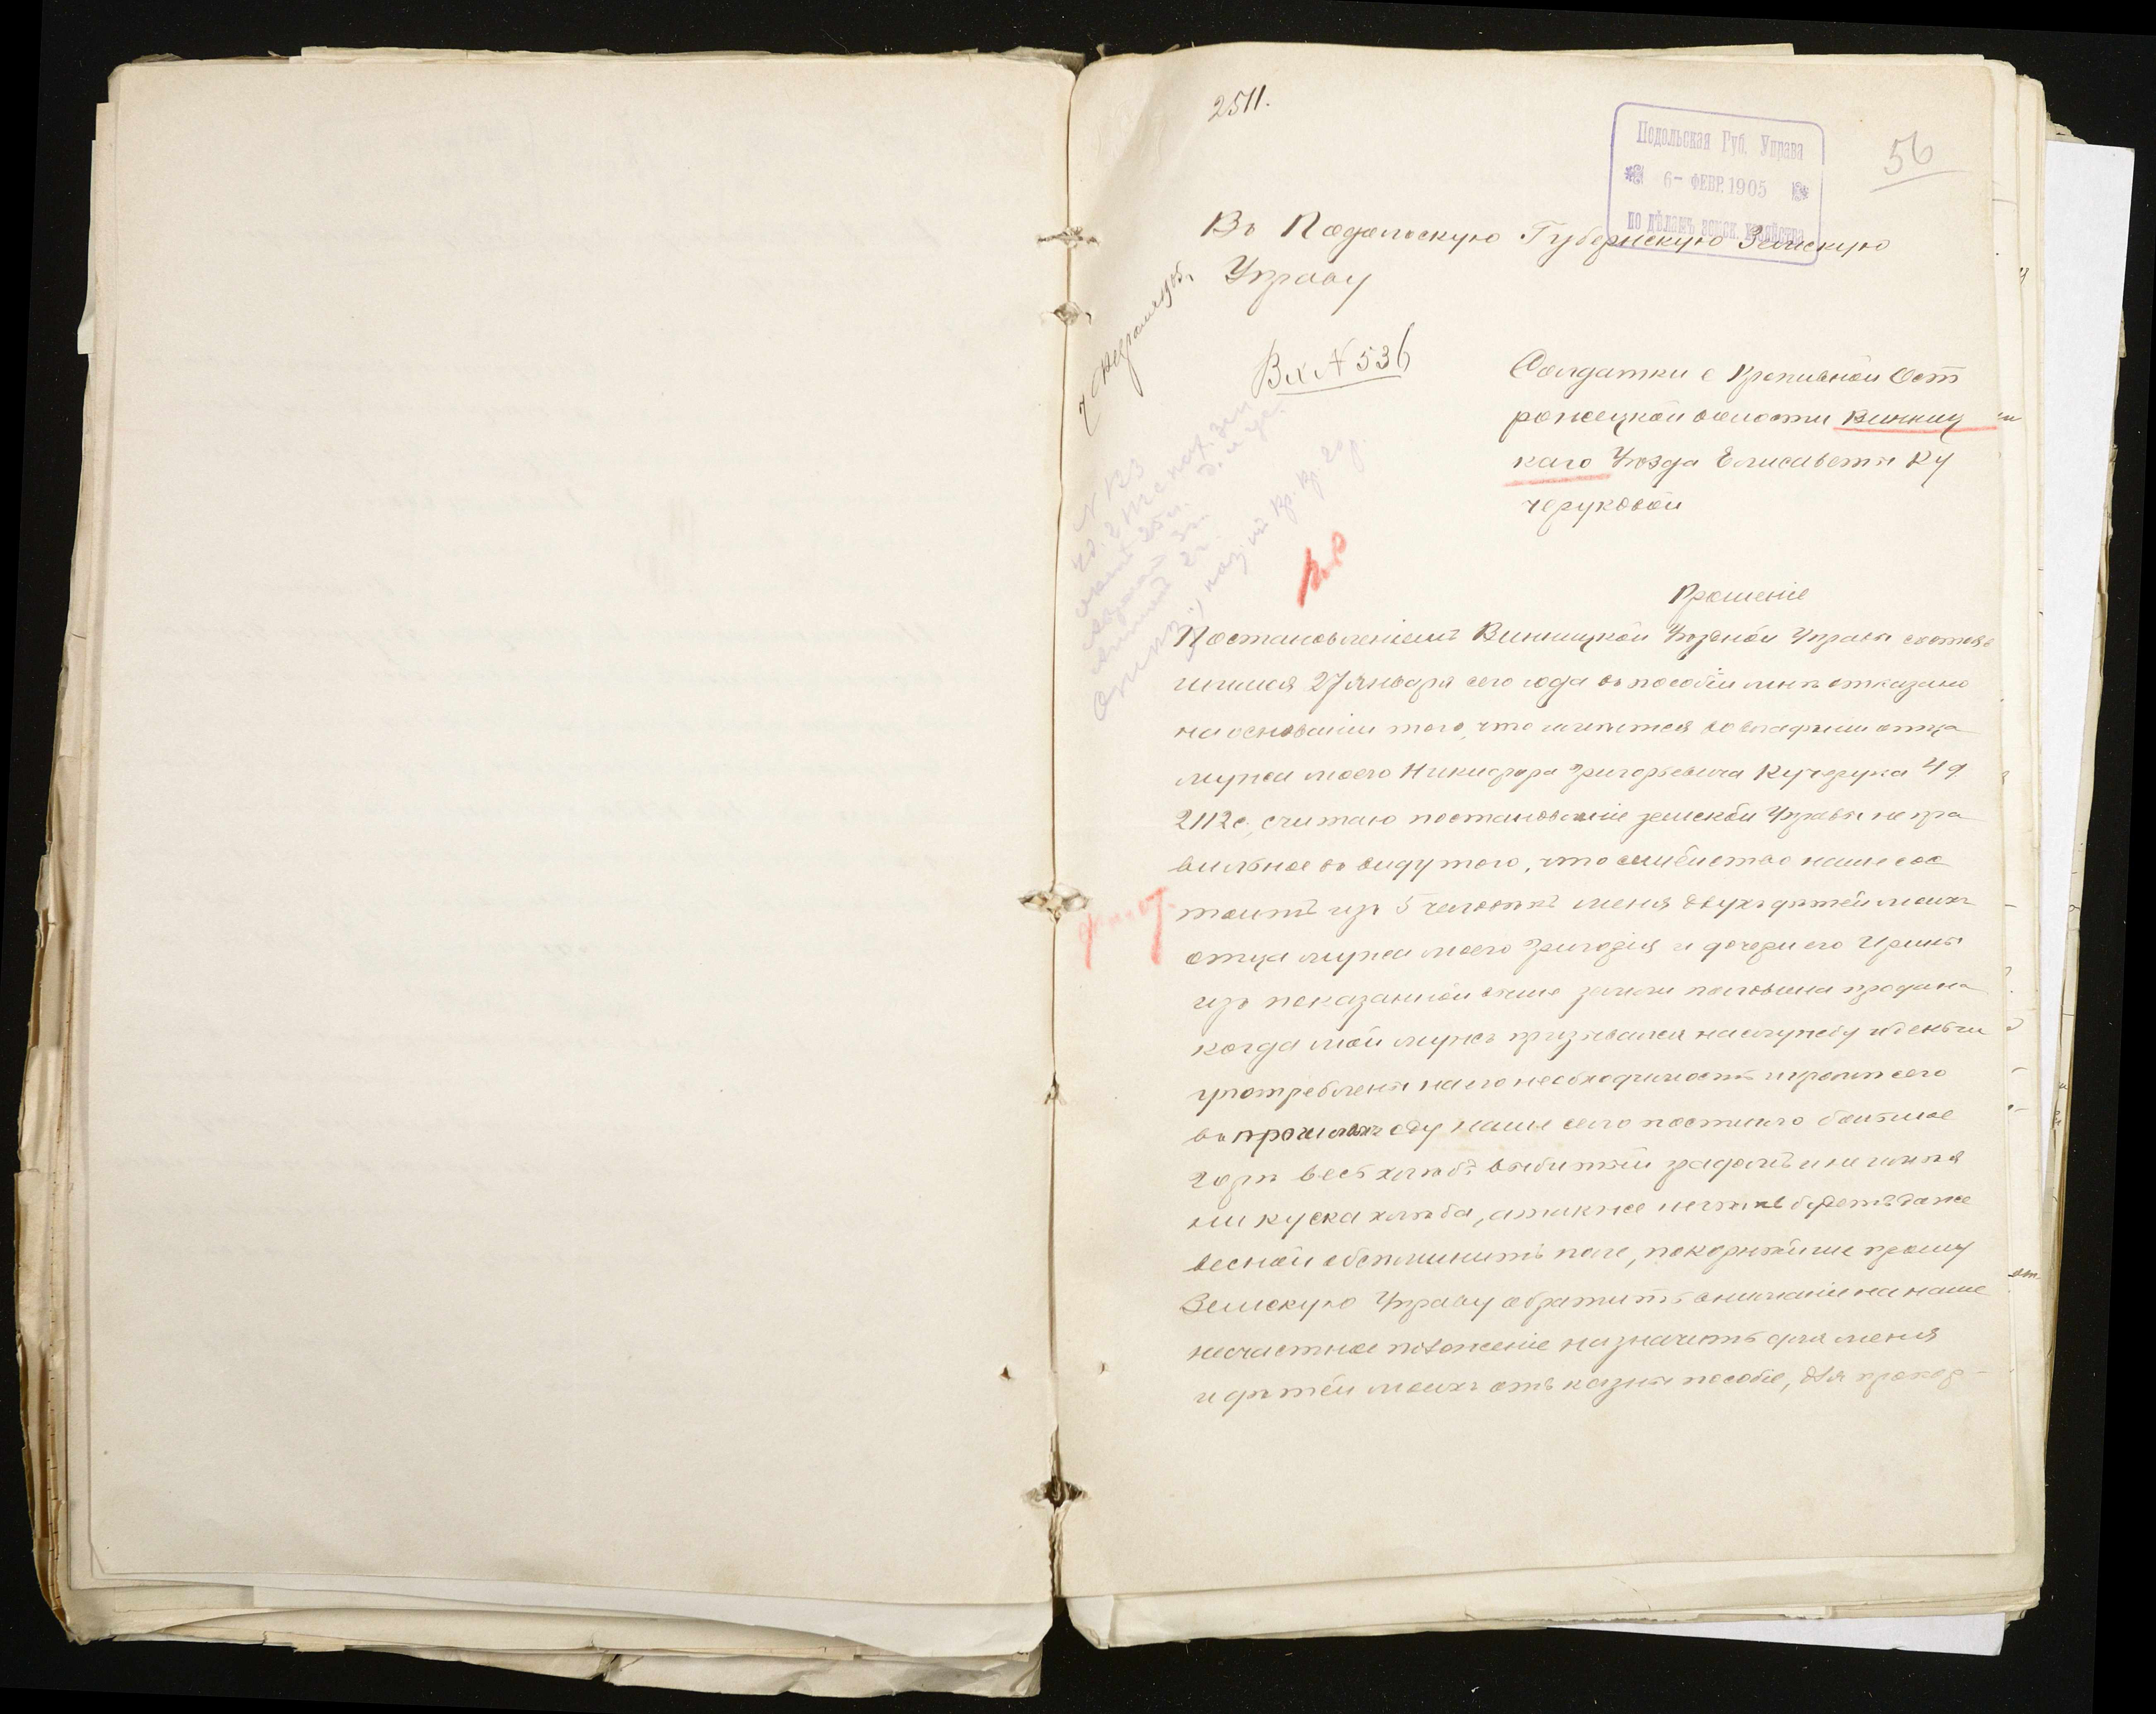 2511.
Подольская Губ. Управа
6- ФЕВР. 1905
по дѣламъ земск. хозяйства
56
Въ Подольскую Губернскую Земскую
Управу
Вх № 536
Солдатки с Кропивной Ост
рожецкой волости Винниц
каго Уѣзда Елисаветы Ку
черуковой
Прошеніе
Постановленіемъ Винницкой Уѣздной Управы состояв
шимся 27 Января сего года въ пособіи мнѣ отказано
на основаніи того, что имѣется во владѣніи отца
мужа моего Никифора Григорьевича Кучерука 4 д
2112 с, считаю постановленіе земской Управы непра
вильное въ виду того, что семейство наше сос
тоитъ изъ 5 человѣкъ меня двухъ дѣтей моихъ
отца мужа моего Григорія и дочери его Ирины
изъ показанной выше земли половина продана
когда мой мужъ призывался на службу и деньги
употреблены на его необходимость и кромѣ сего
въ прошломъ году наше село постигло большое
горе весь хлѣбъ выбитый градомъ и не имѣя
ни куска хлѣба, а также нечѣмъ будетъ даже
весной обсѣменить поле, покорнѣйше прошу
Земскую Управу обратить вниманіе на наше
несчастное положеніе назначить для меня
и дѣтей моихъ отъ казны пособіе, для прокор-